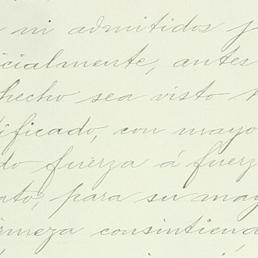 ni admitidos j
icialmente, antes
hecho sea visto
ificado, con mayo
do fuerza á fuerz
ato, para su may
rmeza consintiend